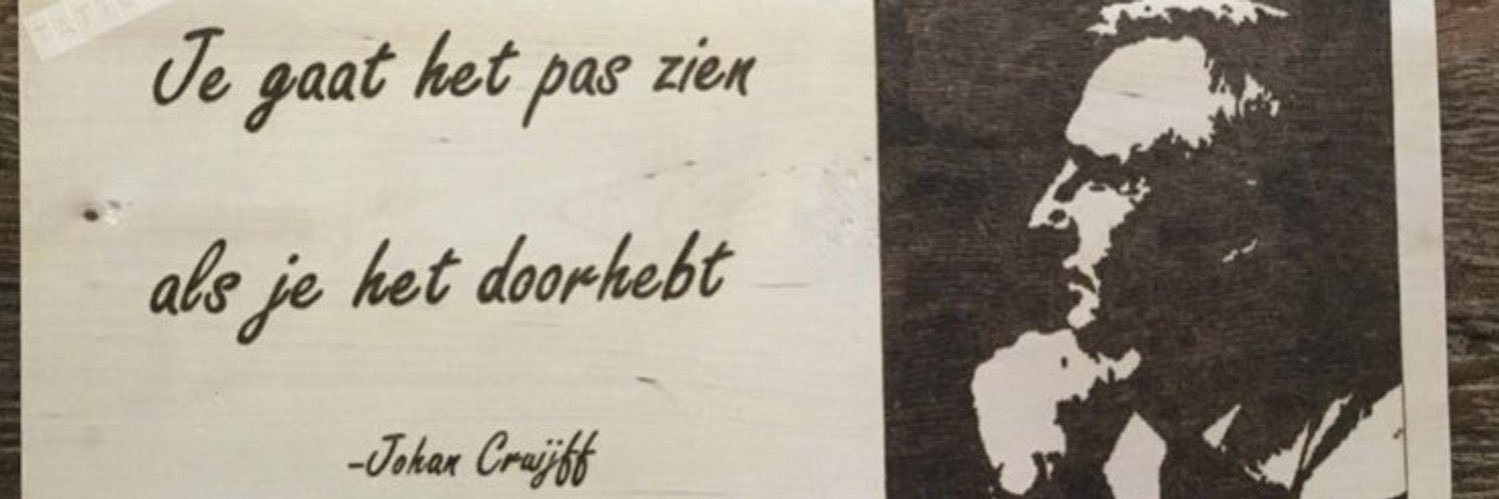 Je gaat het pas zien
als je het doorhebt
-Johan Cruijff